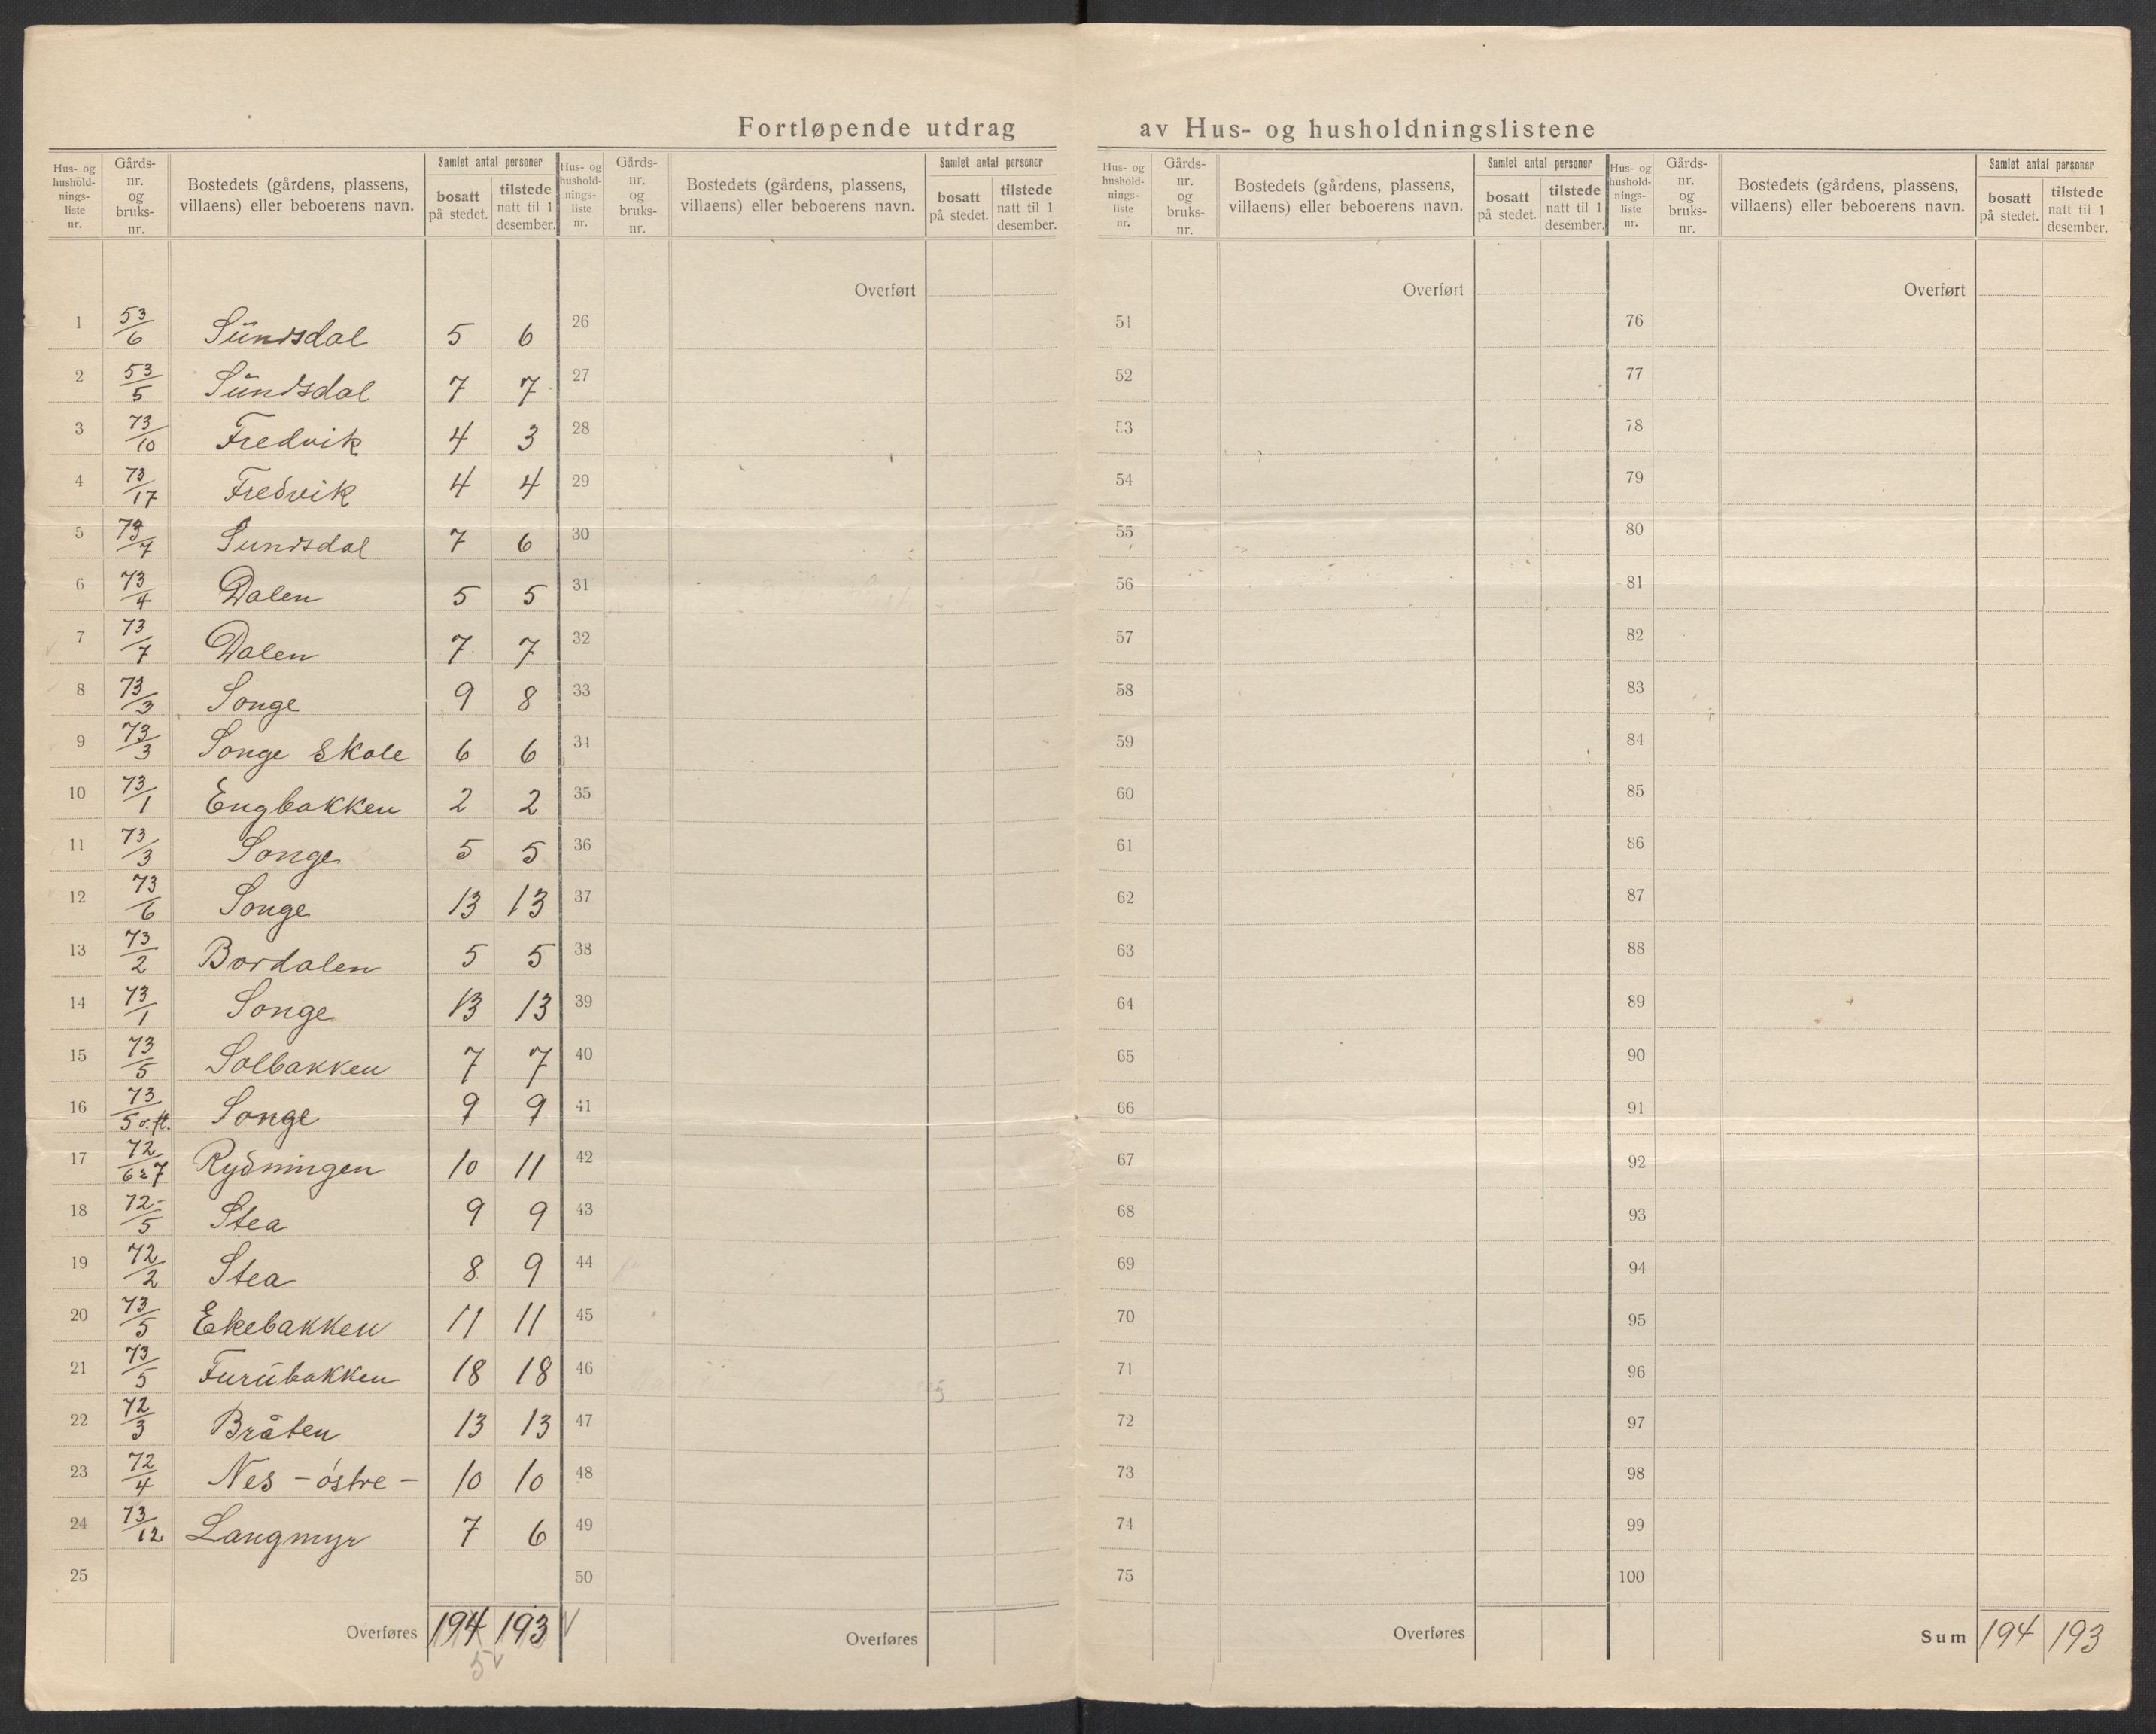 Fortløpende utdrag av Hus- og husholdningslistene
Hus- og hushold-nings-liste nr. | Gårds-nr. og bruks-nr. | Bostedets (gårdens, plassens, villaens) eller beboerens navn. | Samlet antal personer | bosatt på stedet. | tilstede natt til 1 desember.
Hus- og hushold-nings-liste nr. | Gårds-nr. og bruks-nr. | Bostedets (gårdens, plassens, villaens) eller beboerens navn. | Samlet antal personer | bosatt på stedet. | tilstede natt til 1 desember.
Hus- og hushold-nings-liste nr. | Gårds-nr. og bruks-nr. | Bostedets (gårdens, plassens, villaens) eller beboerens navn. | Samlet antal personer | bosatt på stedet. | tilstede natt til 1 desember.
Hus- og hushold-nings-liste nr. | Gårds-nr. og bruks-nr. | Bostedets (gårdens, plassens, villaens) eller beboerens navn. | Samlet antal personer | bosatt på stedet. | tilstede natt til 1 desember.
Overført Overført Overført
1 53/6 Sündsdal 5 6 26 51 76
2 53/5 Sündsdal 7 7 27 52 77
3 73/10 Fredvik 4 3 28 53 78
4 73/17 Fredvik 4 4 29 54 79
5 73/7 Sundsdal 7 6 30 55 80
6 73/4 Dalen 5 5 31 56 81
7 73/7 Dalen 7 7 32 57 82
8 73/3 Songe 9 8 33 58 83
9 73/3 Songe skole 6 6 34 59 84
10 73/1 Engbakken 2 2 35 60 85
11 73/3 Songe 5 5 36 61 86
12 73/6 Songe 13 13 37 62 87
13 73/2 Bordalen 5 5 38 63 88
14 73/1 Songe 13 13 39 64 89
15 73/5 Solbakken 7 7 40 65 90
16 73/5 o.fl. Songe 9 9 41 66 91
17 72/6&7 Rydningen 10 11 42 67 92
18 72/5 Stea 9 9 43 68 93
19 72/2 Stea 8 9 44 69 94
20 73/5 Ekebakken 11 11 45 70 95
21 73/5 Furübakken 18 18 46 71 96
22 72/3 Bråten 13 13 47 72 97
23 72/4 Nes - östre - 10 10 48 73 98
24 73/12 Langmyr 7 6 49 74 99
25 50 75 100
Overføres 194 193 Overføres Overføres Sum 194 193
5